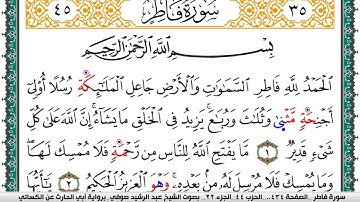 ٣٥ سورة فاطر ٤٥
بِسْمِ اللَّهِ الرَّحْمَٰنِ الرَّحِيمِ
الْحَمْدُ لِلَّهِ فَاطِرِ السَّمَٰوَٰتِ وَالْأَرْضِ جَاعِلِ الْمَلَٰٓئِكَةِ رُسُلًا أُو۟لِىٓ
أَجْنِحَةٍ مَّثْنَىٰ وَثُلَٰثَ وَرُبَٰعَ يَزِيدُ فِى الْخَلْقِ مَا يَشَآءُ إِنَّ اللَّهَ عَلَىٰ كُلِّ
شَىْءٍ قَدِيرٌ ١ مَّا يَفْتَحِ اللَّهُ لِلنَّاسِ مِن رَّحْمَةٍ فَلَا مُمْسِكَ لَهَا
وَمَا يُمْسِكْ فَلَا مُرْسِلَ لَهُ مِنۢ بَعْدِهِ وَهْوَ الْعَزِيزُ الْحَكِيمُ ٢ يَٰٓأَيُّهَا
سورة فاطر . الصفحة ٤٣٤. الحزب ٤٤. الجزء ٢٢ . بصوت الشيخ عبد الرشيد صوفي . برواية أبي الحارث عن الكسائي